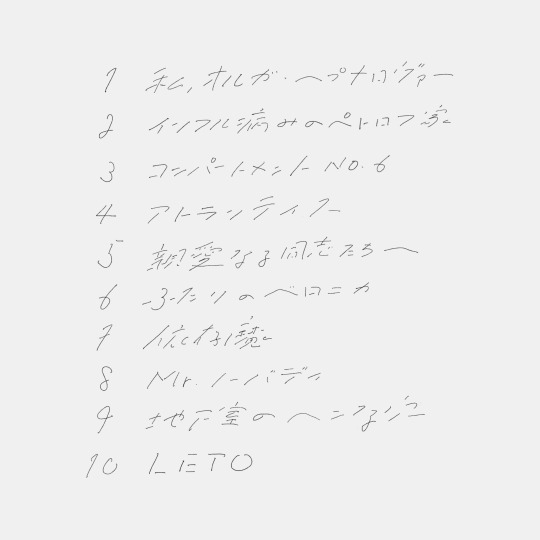 1 私、オルガ・ヘプナロヴァー
2 インフル病みのペトロフ家
3 コンパートメントNo.6
4 アトランティス
5 親愛なる同志たちへ
6 ふたりのベロニカ
7 依存魔
8 Mr.ノーバディ
9 地下室のヘンな穴
10 LETO